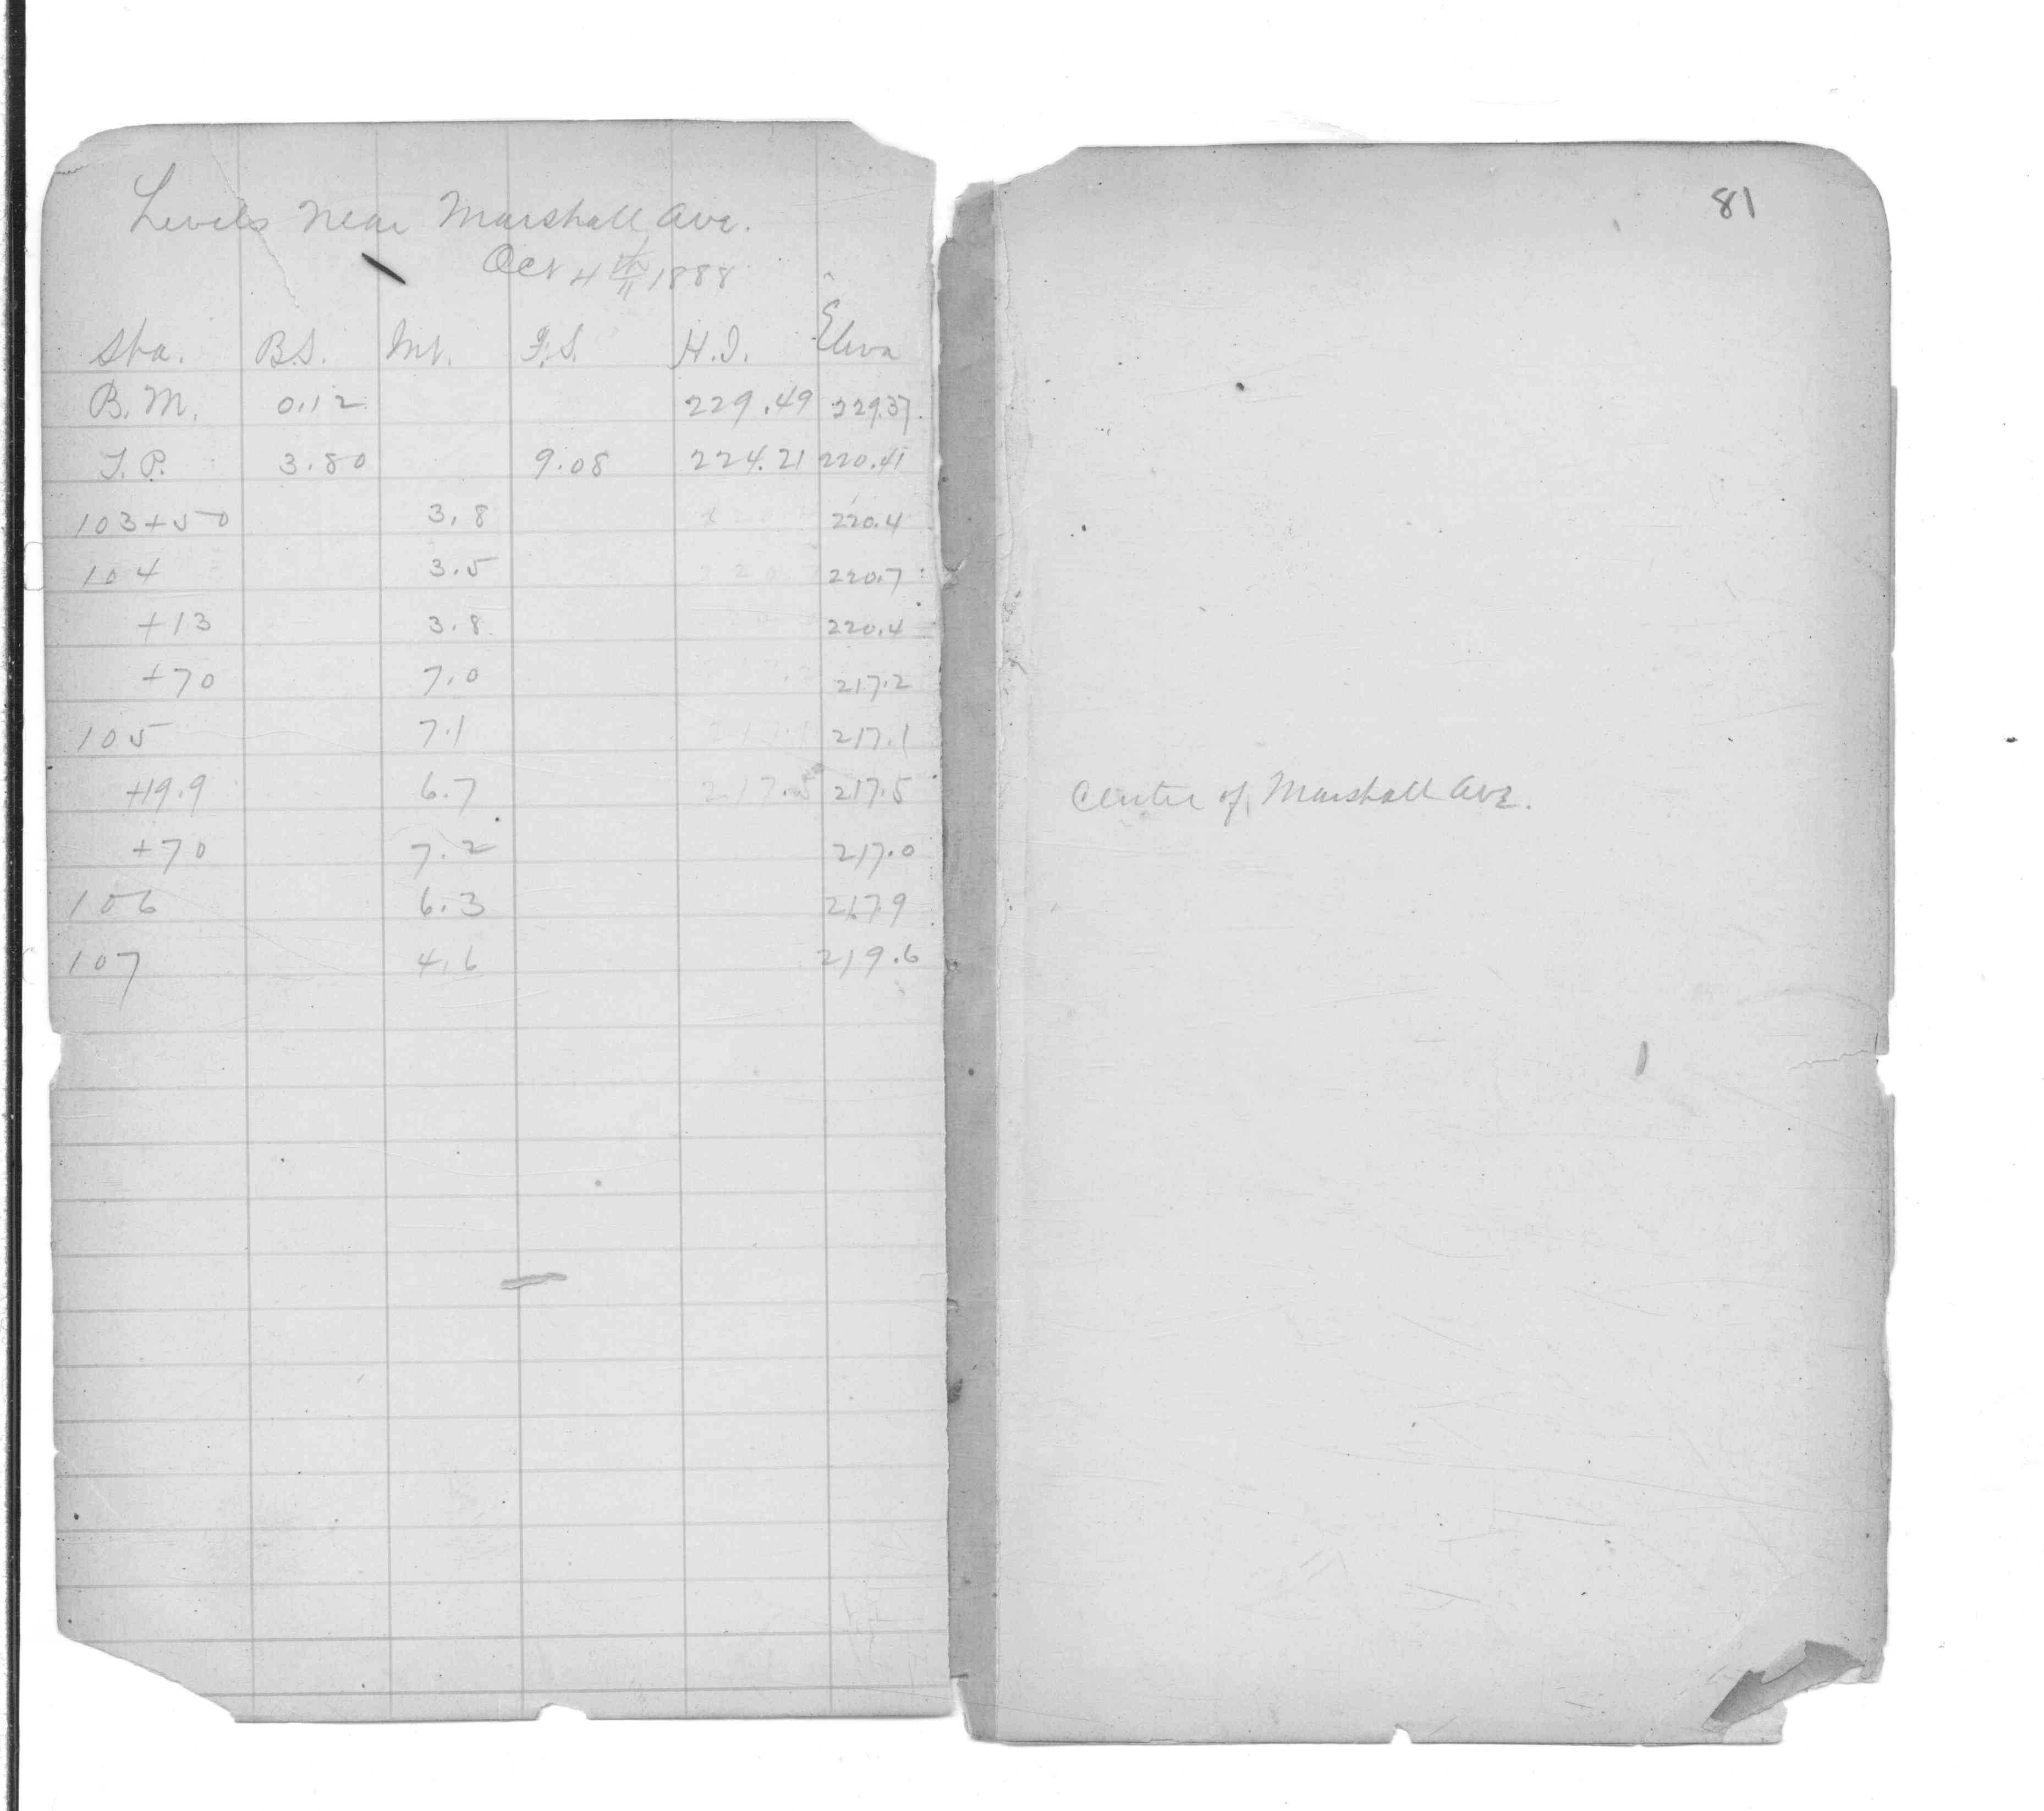 Levels near Marshall Ave.
Oct 4th 1888
Sta. B.S. Int. F.S. H.I. Eleva
B.M. 0.12 229.49 229.37
T.P. 3.80 9.08 224.21 220.41
103+50 3.8 220.4
104 3.5 220.7
+13 3.8 220.4
+70 7.0 217.2
105 7.1 217.1
+19.9 6.7 217.5 217.5
+70 7.2 217.0
106 6.3 217.9
107 4.6 219.6
81
Center of Marshall Ave.